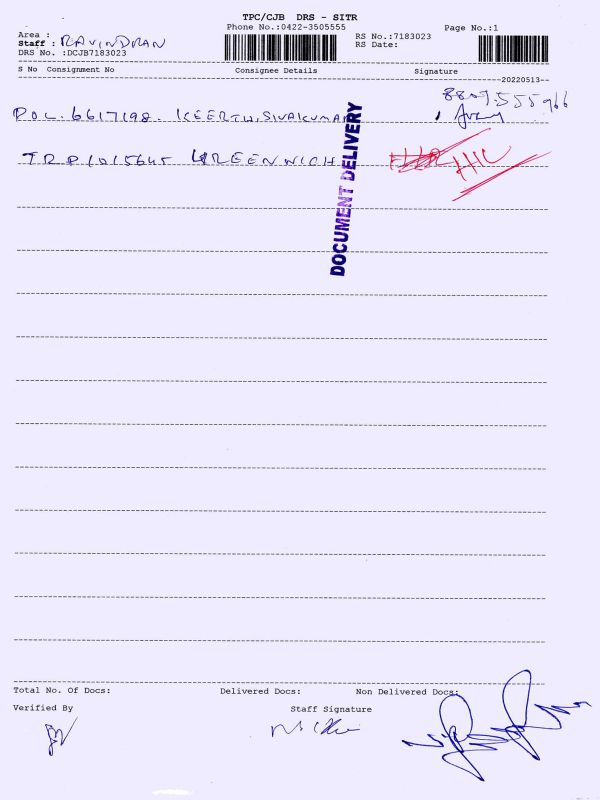 TPC/CJB DRS - SITR
Area : Phone No.:0422-3505555 Page No.:1
Staff : RAVINDRAN RS No.:7183023
DRS No. :DCJB7183023 RS Date:
S No Consignment No Consignee Details Signature
20220513
8807555966
POL. 6617198. KEERTH. SIVAKUMAR
TRP 1015645 GREENWICH
DOCUMENT DELIVERY
Total No. Of Docs: Delivered Docs: Non Delivered Docs:
Verified By Staff Signature